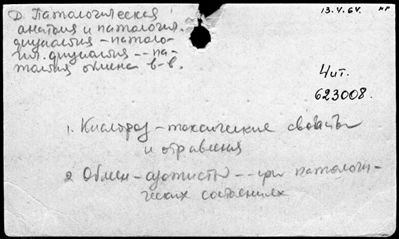 Д. Патологическая
анатомия и патология.
физиология - патоло-
гич. физиология -- па-
тология обмена в-в.
13.V.64. кг
Чит.
623008.
1. Кислород - токсические свойства
и отравления
2. Обмен - азотистый -- при патологи-
ческих состояниях